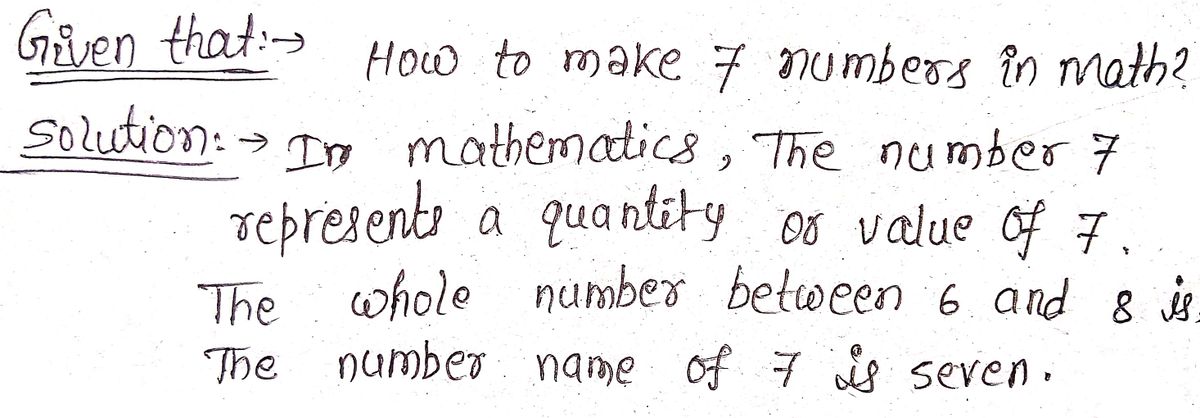 Given that:→ How to make 7 numbers in math?
Solution:→ In mathematics, The number 7
represents a quantity or value of 7.
The whole number between 6 and 8 is.
The number name of 7 is seven.